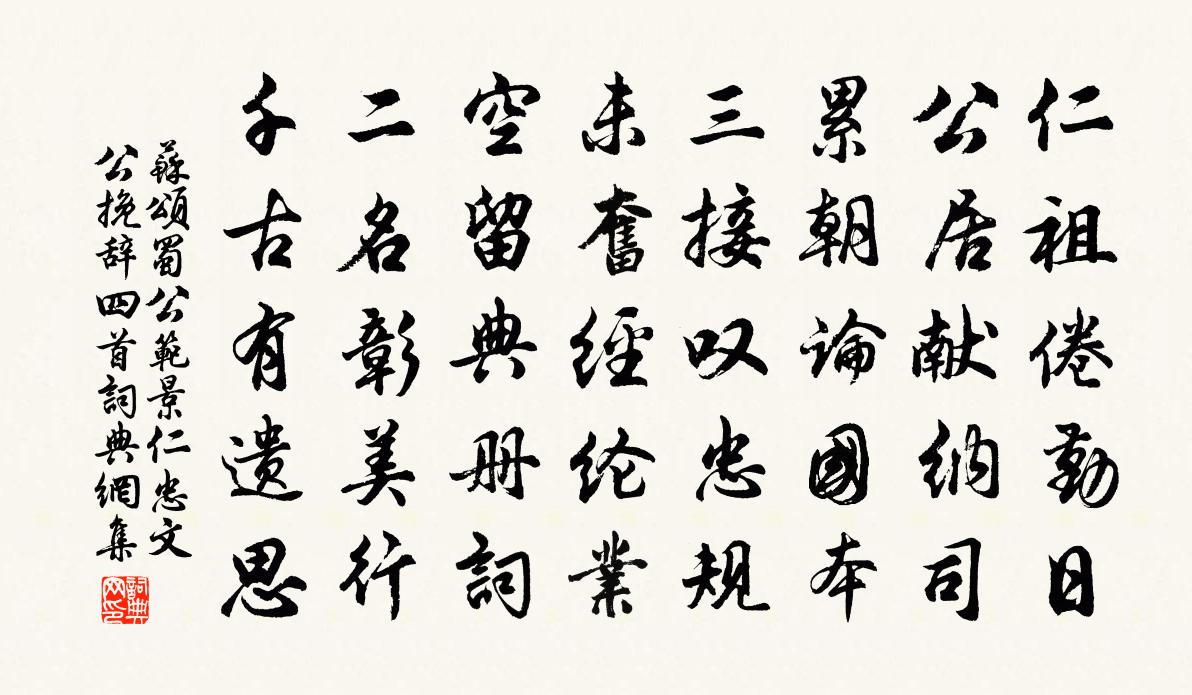 仁祖倦勤日
公居献纳司
累朝論國本
三接叹忠規
未奮經纶業
空留典册詞
二名彰美行
千古有遗思
蘇頌蜀公範景仁忠文
公挽辞四首詞典網集
詞典
网印